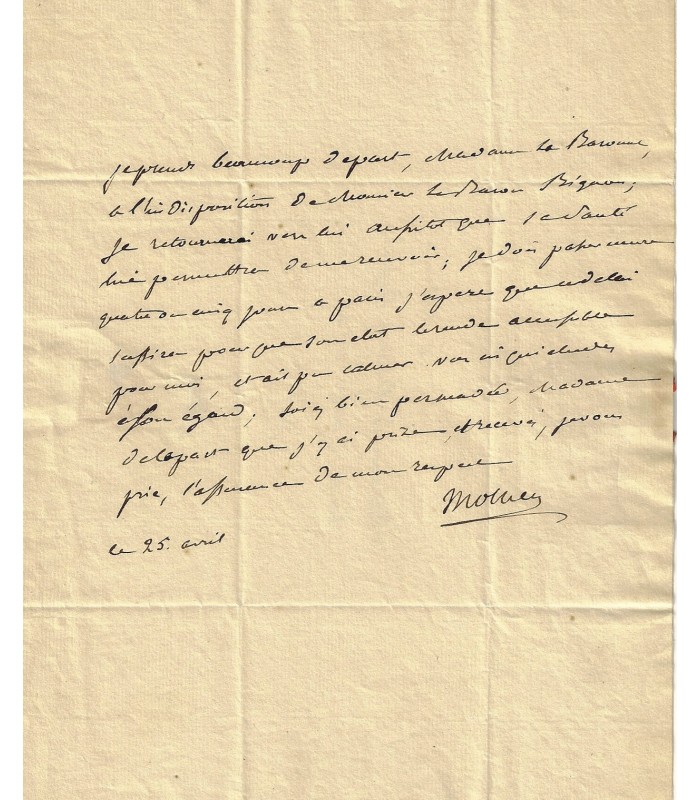 je prends beaucoup de part, Madame La Baronne,
a l'indisposition de Monsieur Le Baron Bignon;
je retournerai vers lui aussitot que sa santé
lui permettra de me recevoir; je dois passer encore
quatre ou cinq jours a paris j'espere que ce delai
suffira pour que son etat le rende accessible
pour moi, et ait pu calmer vos inquietudes
à son égard; soiés bien persuadée, Madame
de la part que j'y ai prise, et recevés, je vous
prie, l'assurance de mon respect
Mollien
le 25. avril